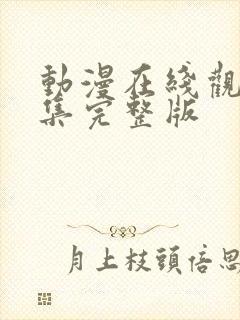 動漫在綫觀
集完整版
月上枝頭倍思